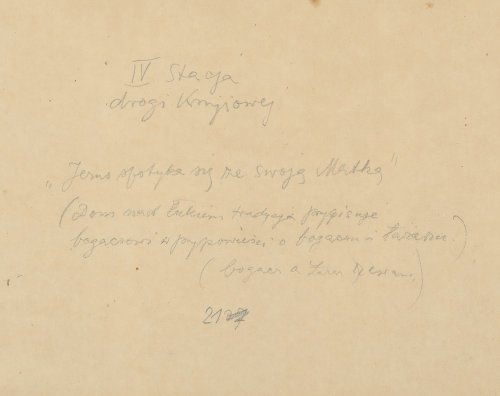 IV Stacja
drogi Krzyżowej
„Jezus spotyka się ze swoją Matką"
(Dom nad Łukiem tradycja przypisuje
bogaczowi w przypowieści o bogaczu i Łazarzu.)
(bogacz a
21